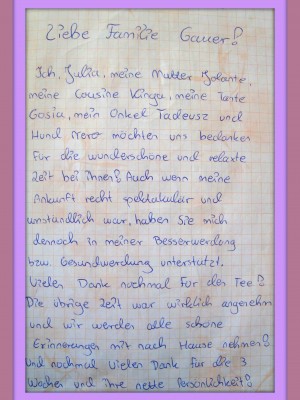 Liebe Familie Gauer!
Ich, Julia, meine Mutter Jolante,
meine Cousine Kinga, meine Tante
Gosia, mein Onkel Tadeusz und
Hund Nero möchten uns bedanken
für die wunderschöne und relaxte
Zeit bei ihnen! Auch wenn meine
Ankunft recht spektakulär und
umständlich war, haben Sie mich
dennoch in meiner Besserwerdung
bzw. Gesundwerdung unterstützt.
Vielen Dank nochmal für den Tee!
Die übrige Zeit war wirklich angenehm
und wir werden alle schöne
Erinnerungen mit nach Hause nehmen!
Und nochmal vielen Dank für die 3
Wochen und ihre nette Persönlichkeit!